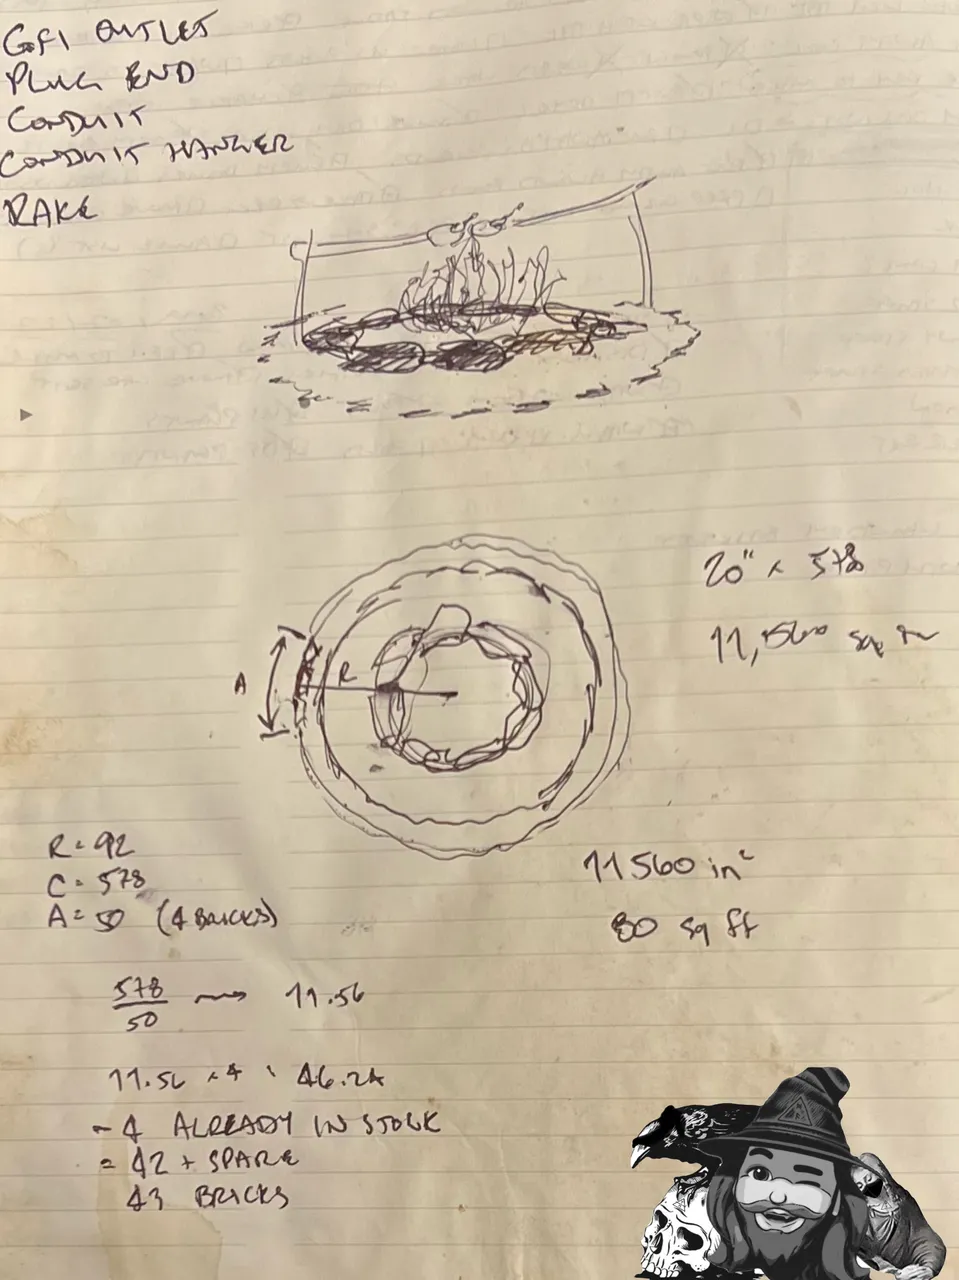 GFI OUTLET
PLUG END
CONDUIT
CONDUIT HANGER
RAKE
20" x 578
11,560 sq in
A
R
R = 92
C = 578
A = 50 (4 BRICKS)
11560 in²
80 sq ft
578
50
11.56
11.56 x 4 = 46.24
- 4 ALREADY IN STOCK
= 42 + SPARE
43 BRICKS